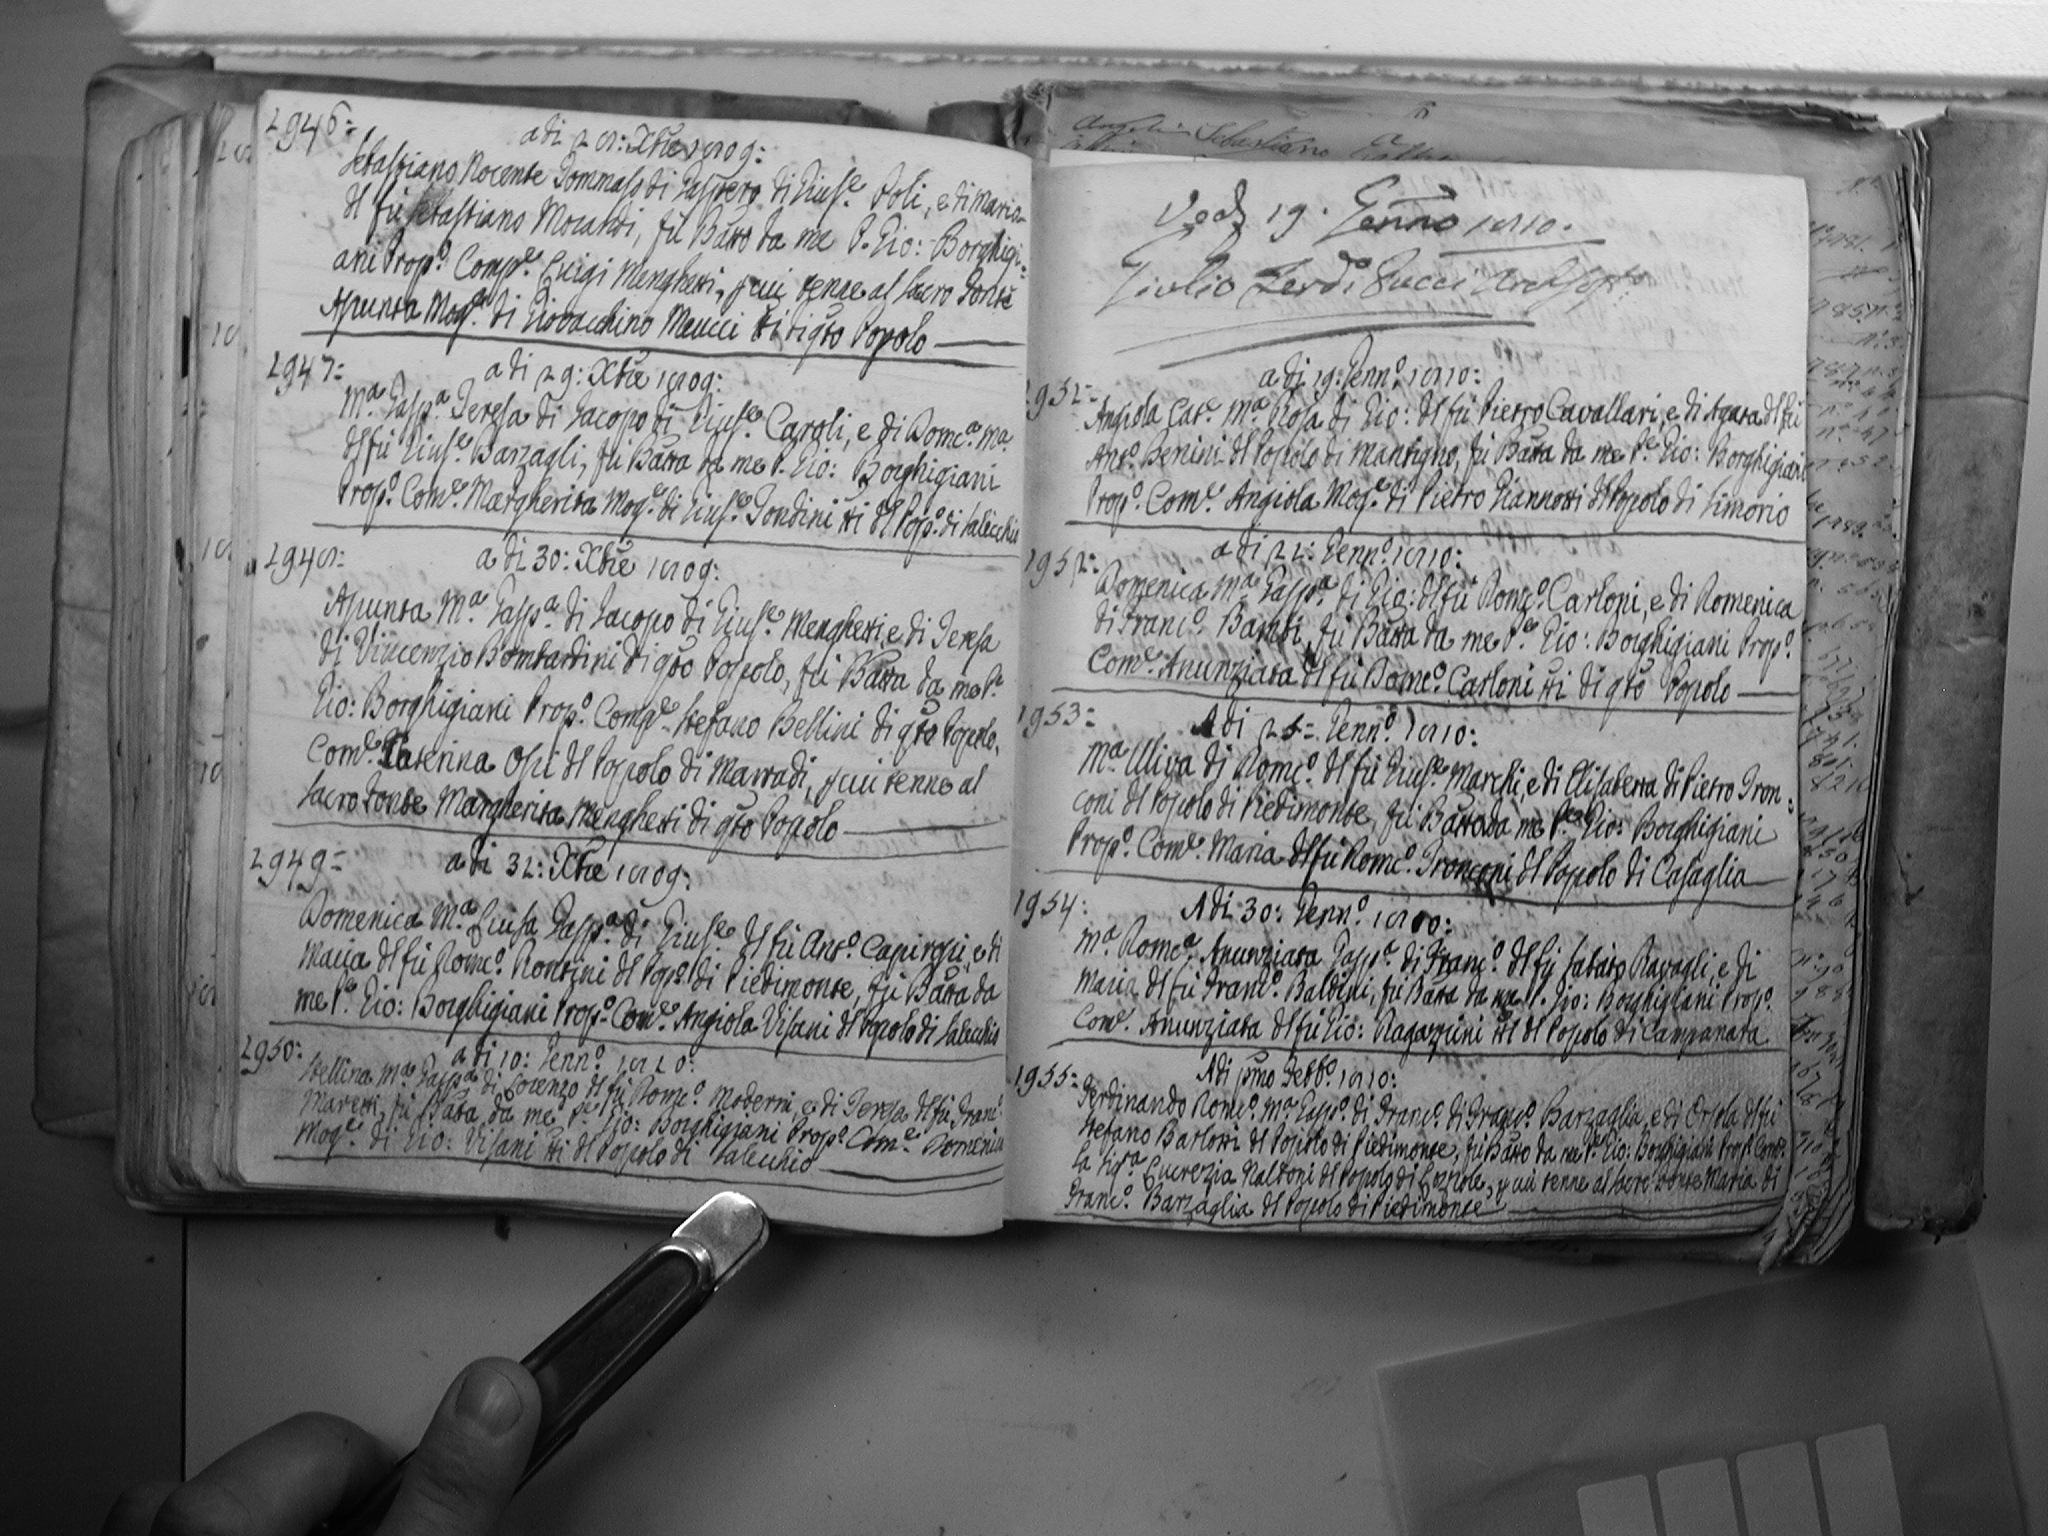 1946:
a di 28: Xbre 1809:
Sebastiano Nocente Tommaso di Gaspero di Giuse. Poli, e di Maria
del fù Sebastiano Morandi, fù Batto da me P. Gio: Borghigi=
ani Propo. Compe. Luigi Menghetti, p cui tenne al Sacro Fonte
Assunta Moge. di Giovacchino Meucci tti di qsto Popolo
1947:
a di 29: Xbre 1809:
Ma. Gaspa. Teresa di Jacopo di Giuse. Caroli, e di Domca. Ma.
del fù Giuse. Barzagli, fù Batta da me P. Gio: Borghigiani
Propo. Come. Margherita Moge. di Giuse. Tondini tti del Popo. di Salecchio
1948:
a di 30: Xbre 1809:
Assunta Ma. Gaspa. di Jacopo di Giuse. Menghetti e di Teresa
di Vincenzio Bombardini di qsto Popolo, fù Batta da me Pe.
Gio: Borghigiani Propo. Compe. Stefano Bellini di qsto Popolo,
Come. Caterina Ospi del Popolo di Marradi, p cui tenne al
Sacro Fonte Margherita Menghetti di qsto Popolo
1949=
a di 31: Xbre 1809:
Domenica Ma. Luisa Gaspa. di Giuse. del fù Anto. Capirossi, e di
Maria del fù Domco. Rontini del Popo. di Piedimonte, fù Batta da
me Pe. Gio: Borghigiani Propo. Come. Angiola Visani del Popolo di Salecchio
1950:
a di 10: Genno. 1810:
Stellina Ma. Gaspa. di Lorenzo del fù Domco. Moderni, e di Teresa del fù Franco.
Maretti, fù Batta da me Pe. Gio: Borghigiani Propo. Come. Domenica
Moge. di Gio: Visani tti del Popolo di Salecchio
19. Genno 1810.
Giulio
a di 19: Genno. 1810:
1951=
Angiola Cate. Ma. Rosa di Gio: del fù Pietro Cavallari, e di Agata del fù
Anto. Benini del Popolo di Mantigno, fù Batta da me Pe. Gio: Borghigiani
Propo. Come. Angiola Moge. di Pietro Giannotti del Popolo di Limorio
a di 21: Genno. 1810:
1952:
Domenica Ma. Gaspa. di Gio: del fù Domco. Carloni, e di Domenica
di Franco. Bambi, fù Batta da me Pe. Gio: Borghigiani Propo.
Come. Anunziata del fù Domco. Carloni tti di qsto Popolo
1953=
A di 25= Genno. 1810:
Ma. Uliva di Domco. del fù Giuse. Marchi, e di Elisabetta di Pietro Tron=
coni del Popolo di Piedimonte, fù Batta da me Pe. Gio: Borghigiani
Propo. Come. Maria del fù Domco. Tronconi del Popolo di Casaglia
1954:
A di 30: Genno. 1810:
Ma. Domca. Anunziata Gaspa. di Franco. del fù Sabato Ravagli, e di
Maria del fù Franco. Baldini, fù Batta da me P. Gio: Borghigiani Propo.
Come. Anunziata del fù Gio: Ragazzini tti del Popolo di Campanara
A di pmo Febbo. 1810:
1955:
Ferdinando Domco. Ma. Gaspo. di Franco. di Franco. Barzaglia, e di Orsola del fù
Stefano Barlotti del Popolo di Piedimonte, fù Batto da me Pe. Gio: Borghigiani Propo. Come.
la Siga. Lucrezia Naldoni del Popolo di Lozzole, p cui tenne al Sacro Fonte Maria di
Franco. Barzaglia del Popolo di Piedimonte